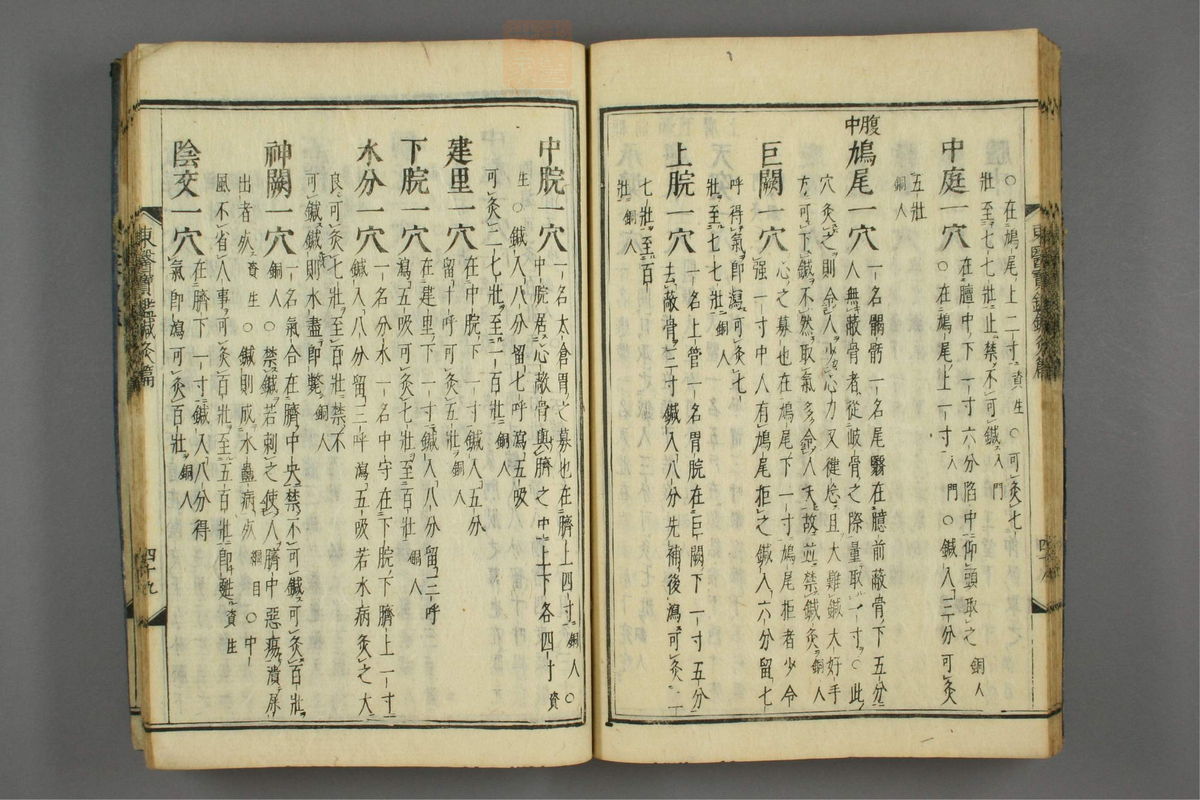 ○在鳩尾上二寸資生○可灸七
壯至七七壯止禁不可鍼入門
中庭一穴在膻中下一寸六分陷中仰頭取之銅人
○在鳩尾上一寸入門○鍼入三分可灸
五壯
銅人
腹中
鳩尾一穴一名𩩲骬一名尾翳在臆前蔽骨下五分
人無蔽骨者從岐骨之際量取一寸○此
穴灸之則令人少心力又健忘且大難鍼大好手
方可下鍼不然取氣多令人夭故並禁鍼灸銅人
巨闕一穴心之募也在鳩尾下一寸鳩尾拒者少令
強一寸中人有鳩尾拒之鍼入六分留七
呼得氣卽瀉可灸七
壯至七七壯銅人
上脘一穴一名上管一名胃脘在巨闕下一寸五分
去蔽骨三寸鍼入八分先補後瀉可灸二
七壯至百
壯銅人
東醫寶鑑鍼灸篇
中脘一穴一名太倉胃之募也在臍上四寸銅人○
中脘居心蔽骨與臍之中上下各四寸資
生○鍼入八分留七呼瀉五吸
可灸二七壯至一百壯銅人
建里一穴在中脘下一寸鍼入五分
留十呼可灸五壯銅人
下脘一穴在建里下一寸鍼入八分留三呼
瀉五吸可灸七壯至百壯銅人
水分一穴一名分水一名中守在下脘下臍上一寸
鍼入八分留三呼瀉五吸若水病灸之大
良可灸七壯至百壯禁不
可鍼鍼則水盡卽斃銅人
神闕一穴一名氣合在臍中央禁不可鍼可灸百壯
銅人○禁鍼若刺之使人臍中惡瘍潰屎
出者死資生○鍼則成水蠱病死綱目○中
風不省人事可灸百壯至五百壯卽甦資生
陰交一穴在臍下一寸鍼入八分得
氣卽瀉可灸百壯銅人
東醫寶鑑鍼灸篇
四十九